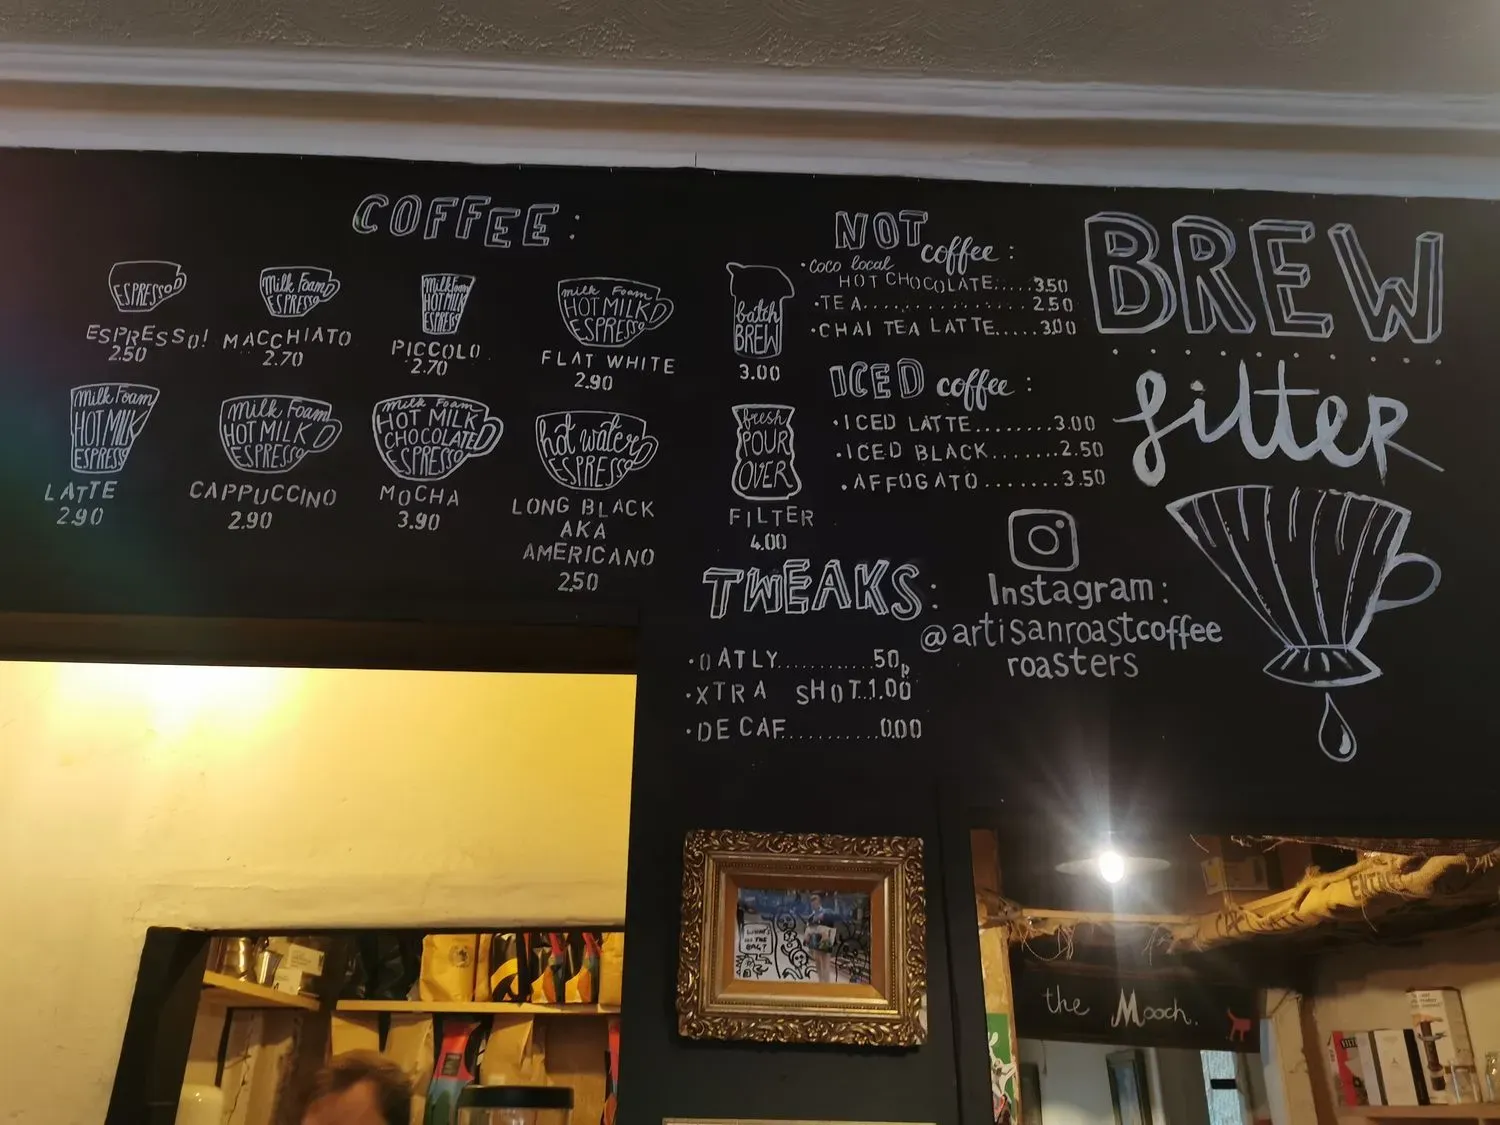 COFFEE:
ESPRESSO
ESPRESSO!
2.50
Milk Foam
ESPRESSO
MACCHIATO
2.70
Milk Foam
HOT MILK
ESPRESSO
PICCOLO
2.70
milk Foam
HOT MILK
ESPRESSO
FLAT WHITE
2.90
Milk Foam
HOT MILK
ESPRESSO
LATTE
2.90
Milk Foam
HOT MILK
ESPRESSO
CAPPUCCINO
2.90
milk Foam
HOT MILK
CHOCOLATE
ESPRESSO
MOCHA
3.90
hot water
ESPRESSO
LONG BLACK
AKA
AMERICANO
2.50
batch
BREW
3.00
fresh
POUR
OVER
FILTER
4.00
NOT
coffee:
•coco local
HOT CHOCOLATE.....3.50
•TEA................2.50
•CHAI TEA LATTE.....3.00
ICED coffee:
•ICED LATTE........3.00
•ICED BLACK.......2.50
•AFFOGATO........3.50
TWEAKS:
•OATLY...........50p
•XTRA SHOT..1.00
•DECAF..........0.00
Instagram:
@artisanroastcoffee
roasters
BREW
filter
WHAT'S
IN THE
BAG?
the Mooch.